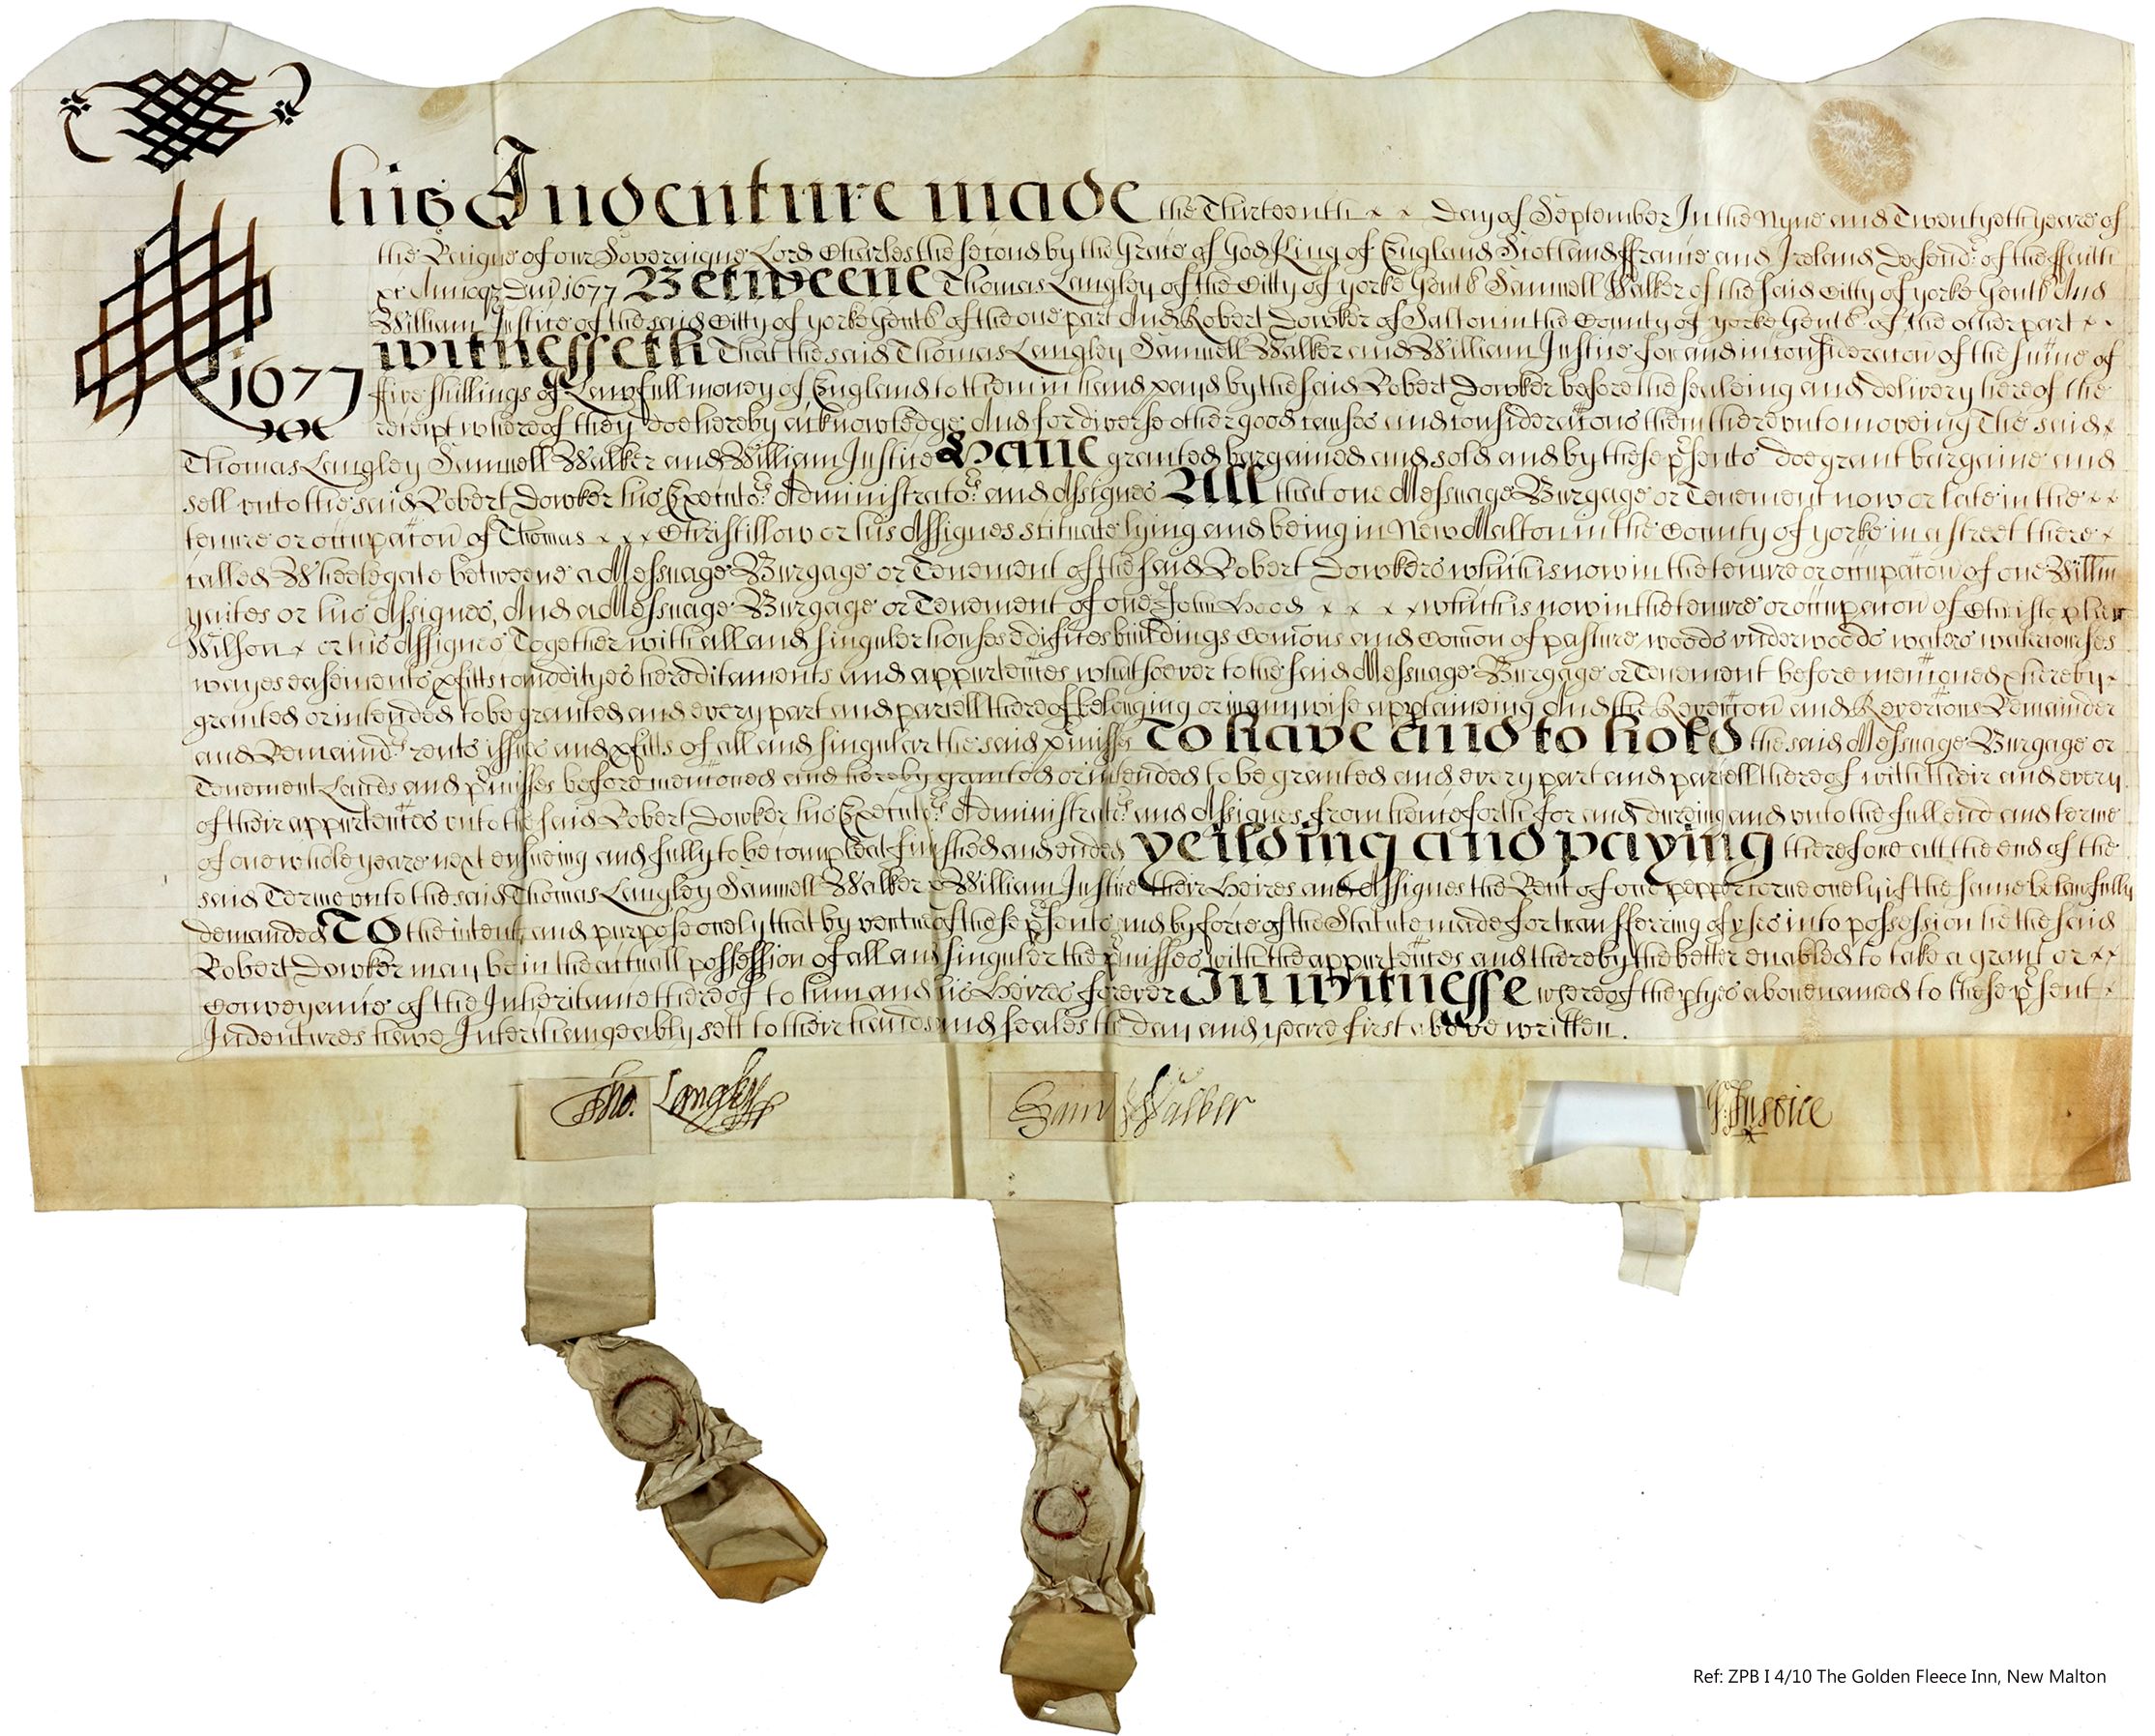 1677
This Indenture made the Thirteenth x x Day of September In the Nyne and Twentyeth yeare of
the Raigne of our Soveraigne Lord Charles the second by the Grace of God King of England Scotland ffrance and Ireland Defendr of the ffaith
&c Annoq Dni 1677 Betweene Thomas Langley of the Citty of yorke Gent Samuell Walker of the said Citty of yorke Gent And
William Justice of the said Citty of yorke Gent of the one part And Robert Dowker of Salton in the County of yorke Gent of the other part x x
witnesseth That the said Thomas Langley Samuell Walker and William Justice for and in consideracon of the sume of
ffive shillings of Lawfull money of England to them in hand payd by the said Robert Dowker before the sealeing and delivery hereof the
receipt whereof they doe hereby acknowledge And for diverse other good causes and consideracons them thereunto moveing The said x
Thomas Langley Samuell Walker and William Justice Haue granted bargained and sold and by these psents doe grant bargaine and
sell unto the said Robert Dowker his Executors Administrators and Assignes All that one Messuage Burgage or Tenement now or late in the x x
tenure or occupacon of Thomas x x x Christillow or his Assignes scituate lying and being in New Malton in the County of yorke in a street there x
called Wheelegate betweene a Messuage Burgage or Tenement of the said Robert Dowkers which is now in the tenure or occupacon of one Willm
yates or his Assignes, And a Messuage Burgage or Tenement of one John Hood x x x x which is now in the tenure or occupacon of Christopher
Wilson x or his Assignes Together with all and singuler houses edifices buildings Comons and Comon of pasture woods underwoods waters watercourses
wayes easements pfitts comodityes hereditaments and appurtences whatsoever to the said Messuage Burgage or Tenement before mencioned & hereby x
granted or intended to be granted and every part and parcell thereof belonging or in any wise apptaineing And the Revercon and Revercons Remainder
and Remaindrs rents issues and pfitts of all and singular the said pmisses To have and to hold the said Messuage Burgage or
Tenement Lands and pmisses before mencioned and hereby granted or intended to be granted and every part and parcell thereof with their and every
of their appurtences unto the said Robert Dowker his Executors Administrators and Assignes from henceforth for and dureing and unto the full end and terme
of one whole yeare next ensueing and fully to be compleat finished and ended yeilding and paying therefore att the end of the
said Terme unto the said Thomas Langley Samuell Walker & William Justice their Heires and Assignes the Rent of one peppercorne onely if the same be lawfully
demanded To the intent and purpose onely that by vertue of these psents and by force of the Statute made for transferring of uses into possession he the said
Robert Dowker may be in the actuall possession of all and singuler the pmisses with the appurtences and thereby the better enabled to take a grant or x x
Conveyance of the Inheritance thereof to him and his Heires forever In witnesse whereof the ptyes abovenamed to these psent x
Indentures have Interchangeably sett to their hands and seales the day and yeare first above written.
Tho. Langley Sam Walker W: Justice
Ref: ZPB I 4/10 The Golden Fleece Inn, New Malton